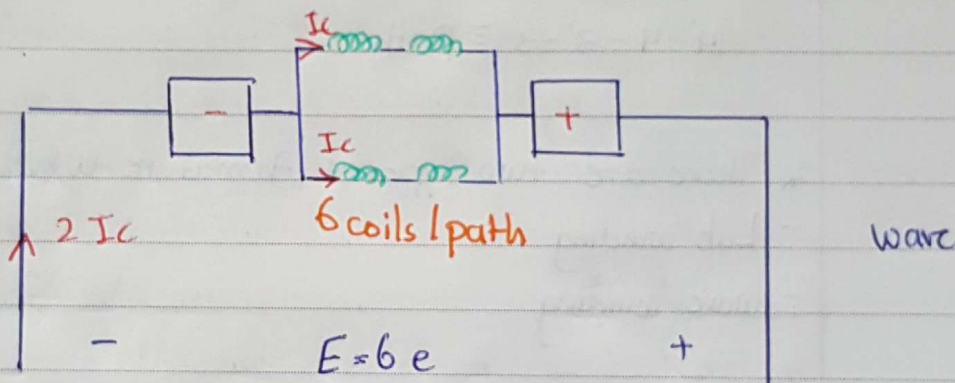 Ic
- +
Ic
6 coils / path
2 Ic
- E = 6 e +